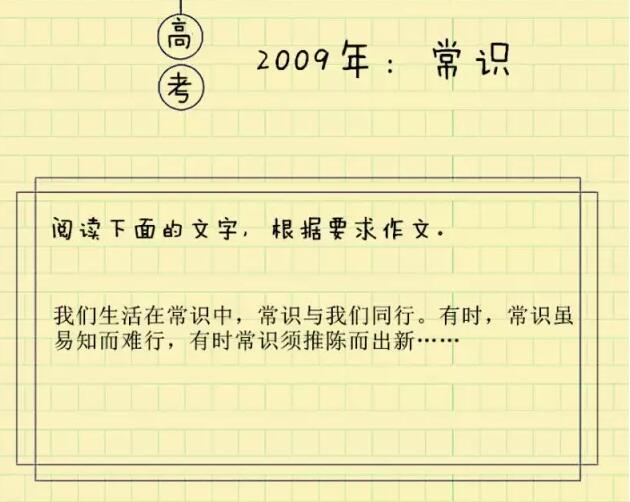 高考
2009年：常识
阅读下面的文字，根据要求作文。
我们生活在常识中，常识与我们同行。有时，常识虽
易知而难行，有时常识须推陈而出新……